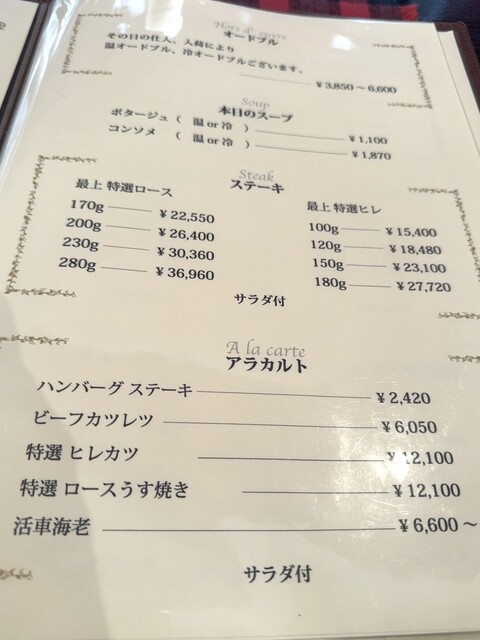 Hors d'œuvre
オードブル
その日の仕入、入荷により
温オードブル、冷オードブルございます。
￥3,850～6,600
Soup
本日のスープ
ポタージュ（ 温 or 冷 ） ￥1,100
コンソメ （ 温 or 冷 ） ￥1,870
Steak
ステーキ
最上 特選ロース
170g ￥22,550
200g ￥26,400
230g ￥30,360
280g ￥36,960
最上 特選ヒレ
100g ￥15,400
120g ￥18,480
150g ￥23,100
180g ￥27,720
サラダ付
A la carte
アラカルト
ハンバーグ ステーキ ￥2,420
ビーフカツレツ ￥6,050
特選 ヒレカツ ￥12,100
特選 ロースうす焼き ￥12,100
活車海老 ￥6,600～
サラダ付